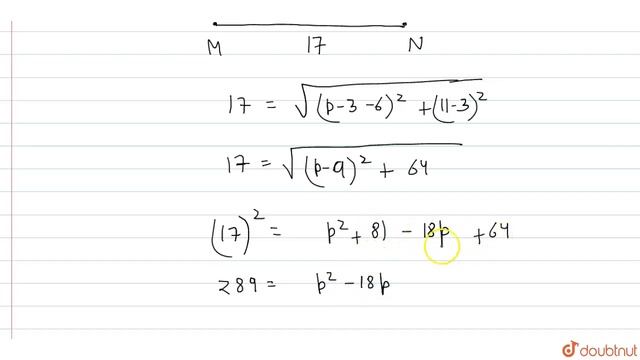 M 17 N
17 = √(p-3-6)² + (11-3)²
17 = √(p-9)² + 64
(17)² = p² + 81 - 18p + 64
289 = p² - 18p
doubtnut